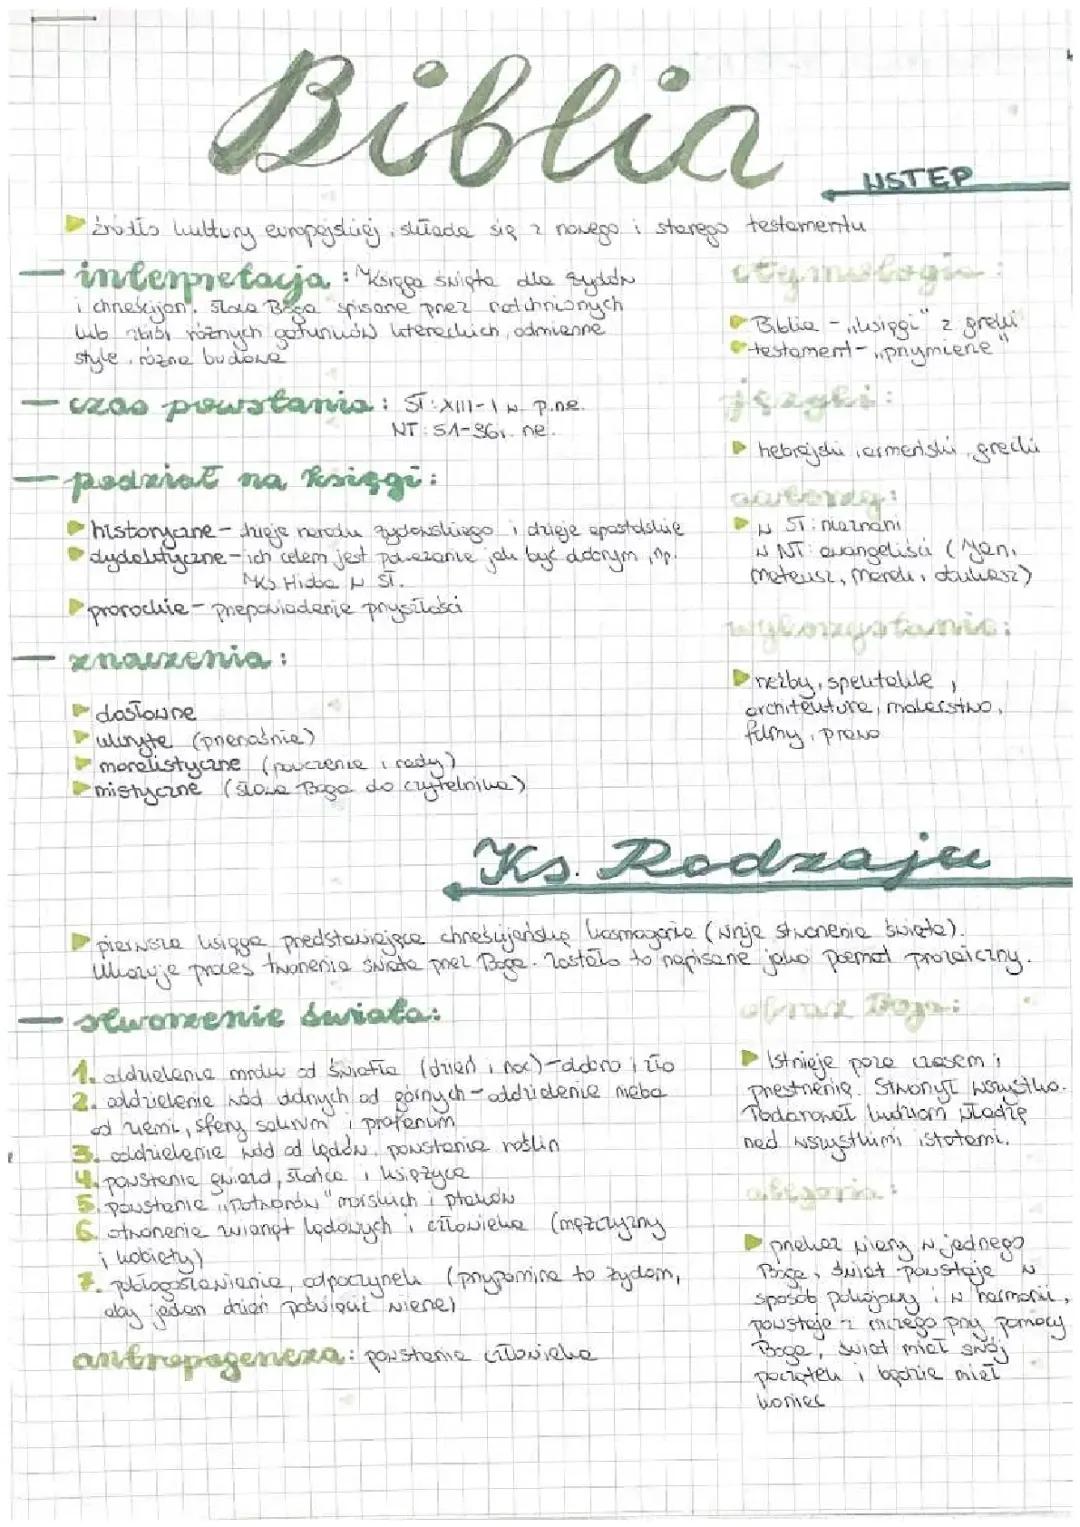 Biblia
WSTĘP
źródło kultury europejskiej, składa się z nowego i starego testamentu
interpretacja: Księga święta dla żydów
i chrześcijan, słowa Boga spisane przez natchnionych
lub zbiór różnych gatunków literackich, odmienne
style, różna budowa
czas powstania: ST: XIII-I w. p.n.e.
NT: 51-96r. n.e.
podział na księgi:
historyczne - dzieje narodu żydowskiego i dzieje apostolskie
dydaktyczne - ich celem jest pouczanie jak być dobrym, np.
Ks. Hioba w ST.
prorockie - przepowiadanie przyszłości
znaczenia:
dosłowne
ukryte (przenośnie)
moralistyczne (pouczenia i rady)
mistyczne (słowa Boga do czytelnika)
etymologia:
Biblia - „księgi" z greki
testament - „przymierze"
języki:
hebrajski, armeński, grecki
autorzy:
w ST: nieznani
w NT: ewangeliści (Jan,
Mateusz, Marek, Łukasz)
wykorzystanie:
rzeźby, spektakle,
architektura, malarstwo,
filmy, prawo
Ks. Rodzaju
pierwsza księga przedstawiająca chrześcijańską kosmogonię (wizję stworzenia świata).
Ukazuje proces tworzenia świata przez Boga. Zostało to napisane jako poemat prozaiczny.
stworzenie świata:
1. oddzielenie mroku od światła (dzień i noc) - dobro i zło
2. oddzielenie wód dolnych od górnych - oddzielenie nieba
od ziemi, sfery sakrum i profanum
3. oddzielenie wód od lądów, powstanie roślin
4. powstanie gwiazd, słońca i księżyca
5. powstanie „potworów" morskich i ptaków
6. stworzenie zwierząt lądowych i człowieka (mężczyzny
i kobiety)
7. pobłogosławienie, odpoczynek (przypomina to żydom,
aby jeden dzień poświęcić wierze)
antropogeneza: powstanie człowieka
obraz Boga:
Istnieje poza czasem i
przestrzenią. Stworzył wszystko.
Podarował ludziom władzę
nad wszystkimi istotami.
alegoria:
przekaz wiary w jednego
Boga, świat powstaje w
sposób pokojowy i w harmonii,
powstaje z niczego przy pomocy
Boga, świat miał swój
początek i będzie miał
koniec